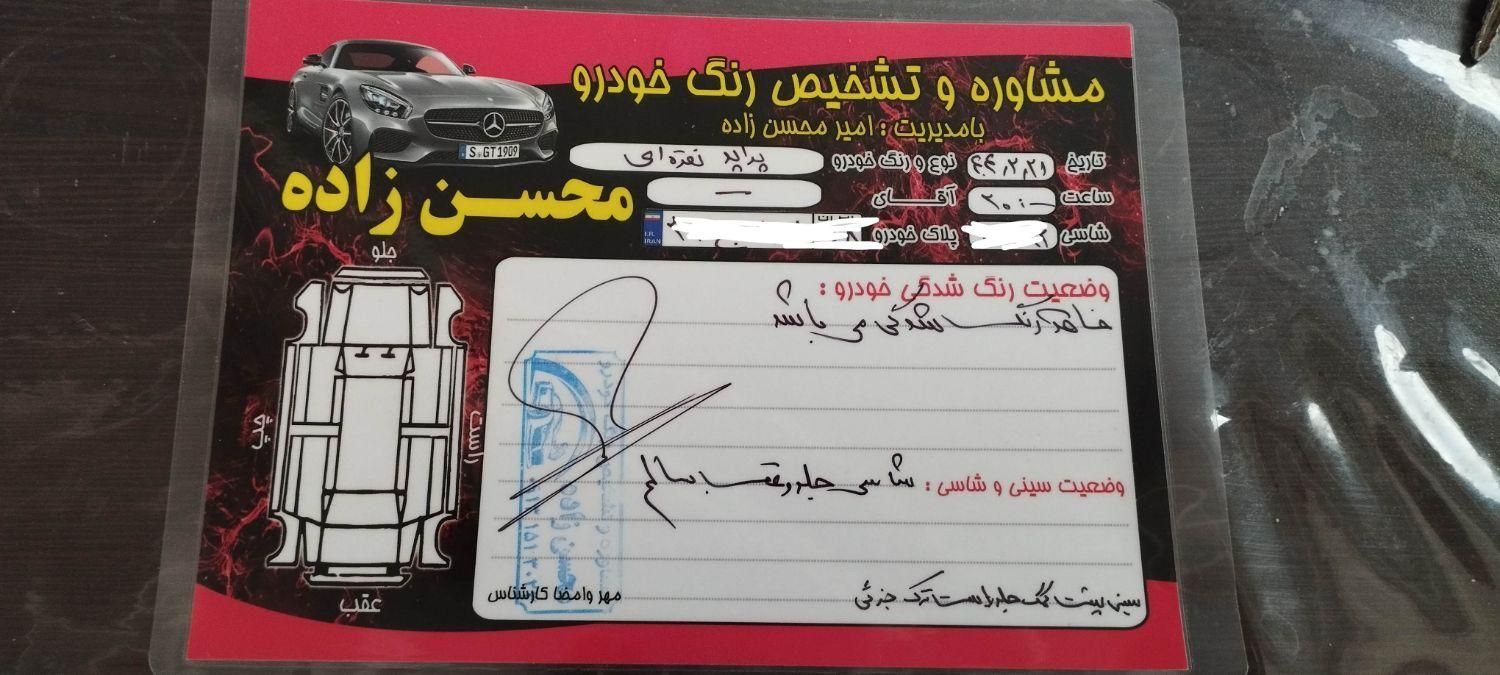 مشاوره و تشخیص رنگ خودرو
بامدیریت : امیر محسن زاده
تاریخ نوع و رنگ خودرو پراید نقره‌ای
ساعت ۲۰:۰۰ آقـــای —
شاسی پلاک خودرو
I.R. IRAN
S GT 1909
محســن زاده
جلو
چپ
راست
عقب
وضعیت رنگ شدگی خودرو :
رنگ شدگی می باشد
وضعیت سینی و شاسی : شاسی جلو و عقب سالم
سینی پشت جلو راست ترک جزئی
مهر وامضا کارشناس
محسن زاده